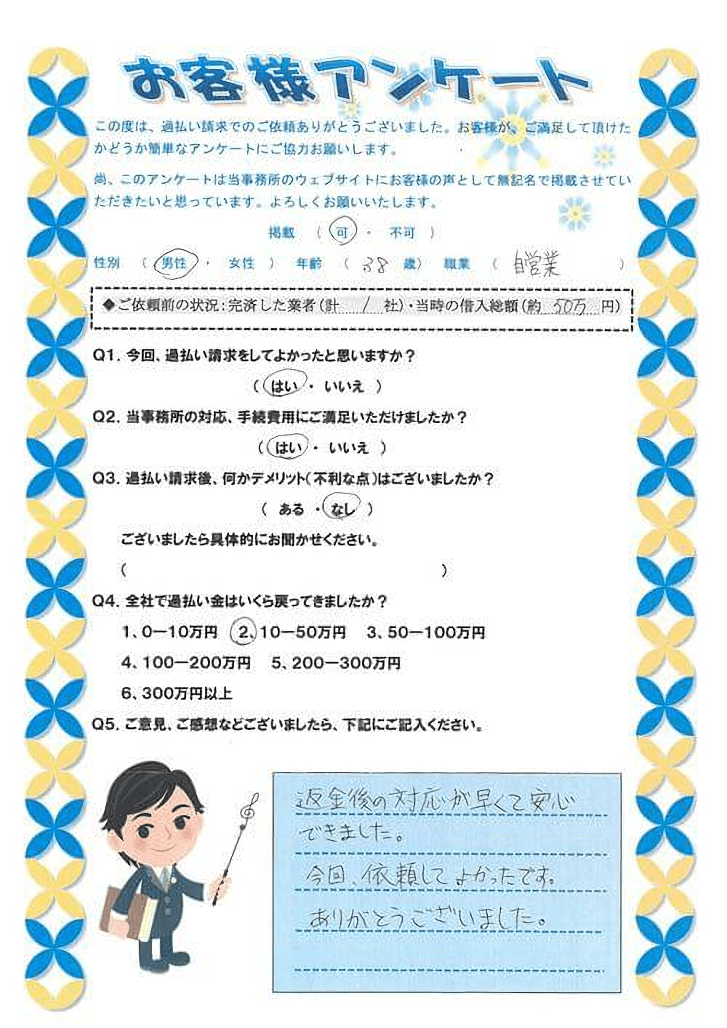 お客様アンケート
この度は、過払い請求でのご依頼ありがとうございました。お客様が、ご満足して頂けた
かどうか簡単なアンケートにご協力お願いします。
尚、このアンケートは当事務所のウェブサイトにお客様の声として無記名で掲載させてい
ただきたいと思っています。よろしくお願いいたします。
掲載 （ 可 ・ 不可 ）
性別 （ 男性 ・ 女性 ） 年齢 （ 38 歳） 職業 （ 自営業 ）
◆ご依頼前の状況：完済した業者（計 1 社）・当時の借入総額（約 50万 円）
Q1. 今回、過払い請求をしてよかったと思いますか？
（ はい ・ いいえ ）
Q2. 当事務所の対応、手続費用にご満足いただけましたか？
（ はい ・ いいえ ）
Q3. 過払い請求後、何かデメリット（不利な点）はございましたか？
（ ある ・ なし ）
ございましたら具体的にお聞かせください。
（ ）
Q4. 全社で過払い金はいくら戻ってきましたか？
1、0－10万円 2、10－50万円 3、50－100万円
4、100－200万円 5、200－300万円
6、300万円以上
Q5. ご意見、ご感想などございましたら、下記にご記入ください。
返金後の対応が早くて安心
できました。
今回、依頼してよかったです。
ありがとうございました。